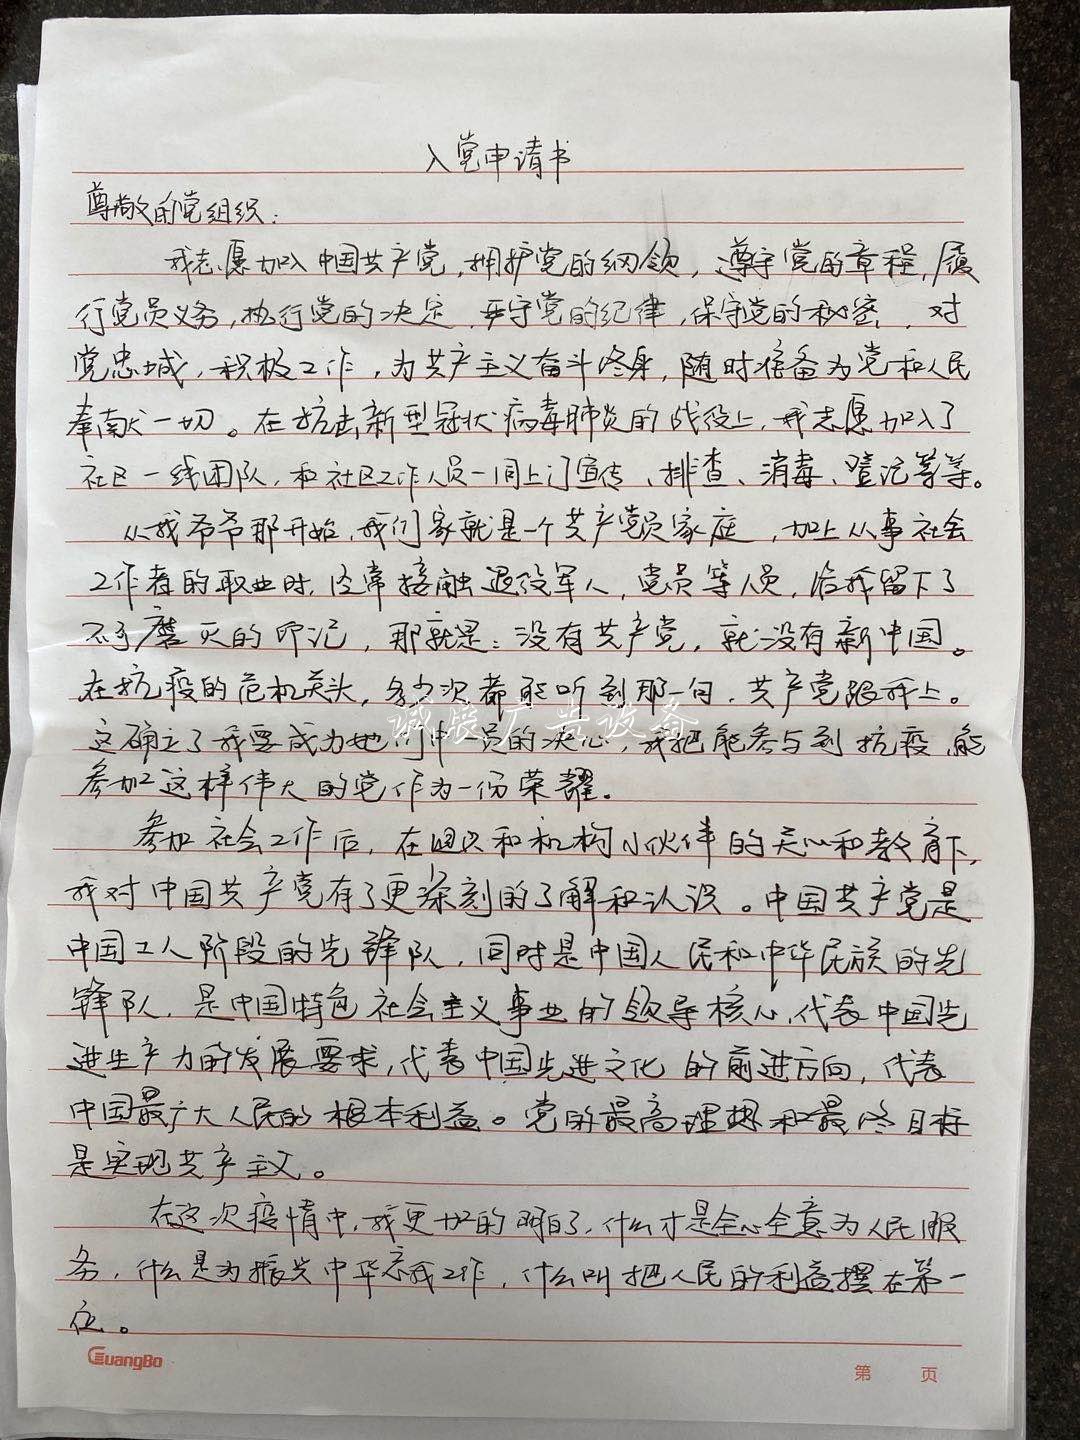 入党申请书
尊敬的党组织：
我志愿加入中国共产党，拥护党的纲领，遵守党的章程，履
行党员义务，执行党的决定，严守党的纪律，保守党的秘密，对
党忠城，积极工作，为共产主义奋斗终身，随时准备为党和人民
奉献一切。在抗击新型冠状病毒肺炎的战役上，我志愿加入了
社区一线团队，和社区工作人员一同上门宣传、排查、消毒、登记等等。
从我爷爷那开始，我们家就是一个共产党员家庭，加上从事社会
工作者的职业时，经常接触退役军人，党员等人员，给我留下了
不可磨灭的印记，那就是：没有共产党，就没有新中国。
在抗疫的危机关头，多少次都能听到那一句，共产党跟我上。
这确立了我要成为她们中一员的决心，我把能参与到抗疫，能
参加这样伟大的党作为一份荣耀。
参加社会工作后，在和机构小伙伴的关心和教育下，
我对中国共产党有了更深刻的了解和认识。中国共产党是
中国工人阶段的先锋队，同时是中国人民和中华民族的先
锋队，是中国特色社会主义事业的领导核心，代表中国先
进生产力的发展要求，代表中国先进文化的前进方向，代表
中国最广大人民的根本利益。党的最高理想和最终目标
是实现共产主义。
在这次疫情中，我更加的明白了，什么才是全心全意为人民服
务，什么是为振兴中华工作，什么叫把人民的利益摆在第一
位。
诚展广告设备
GuangBo
第 页